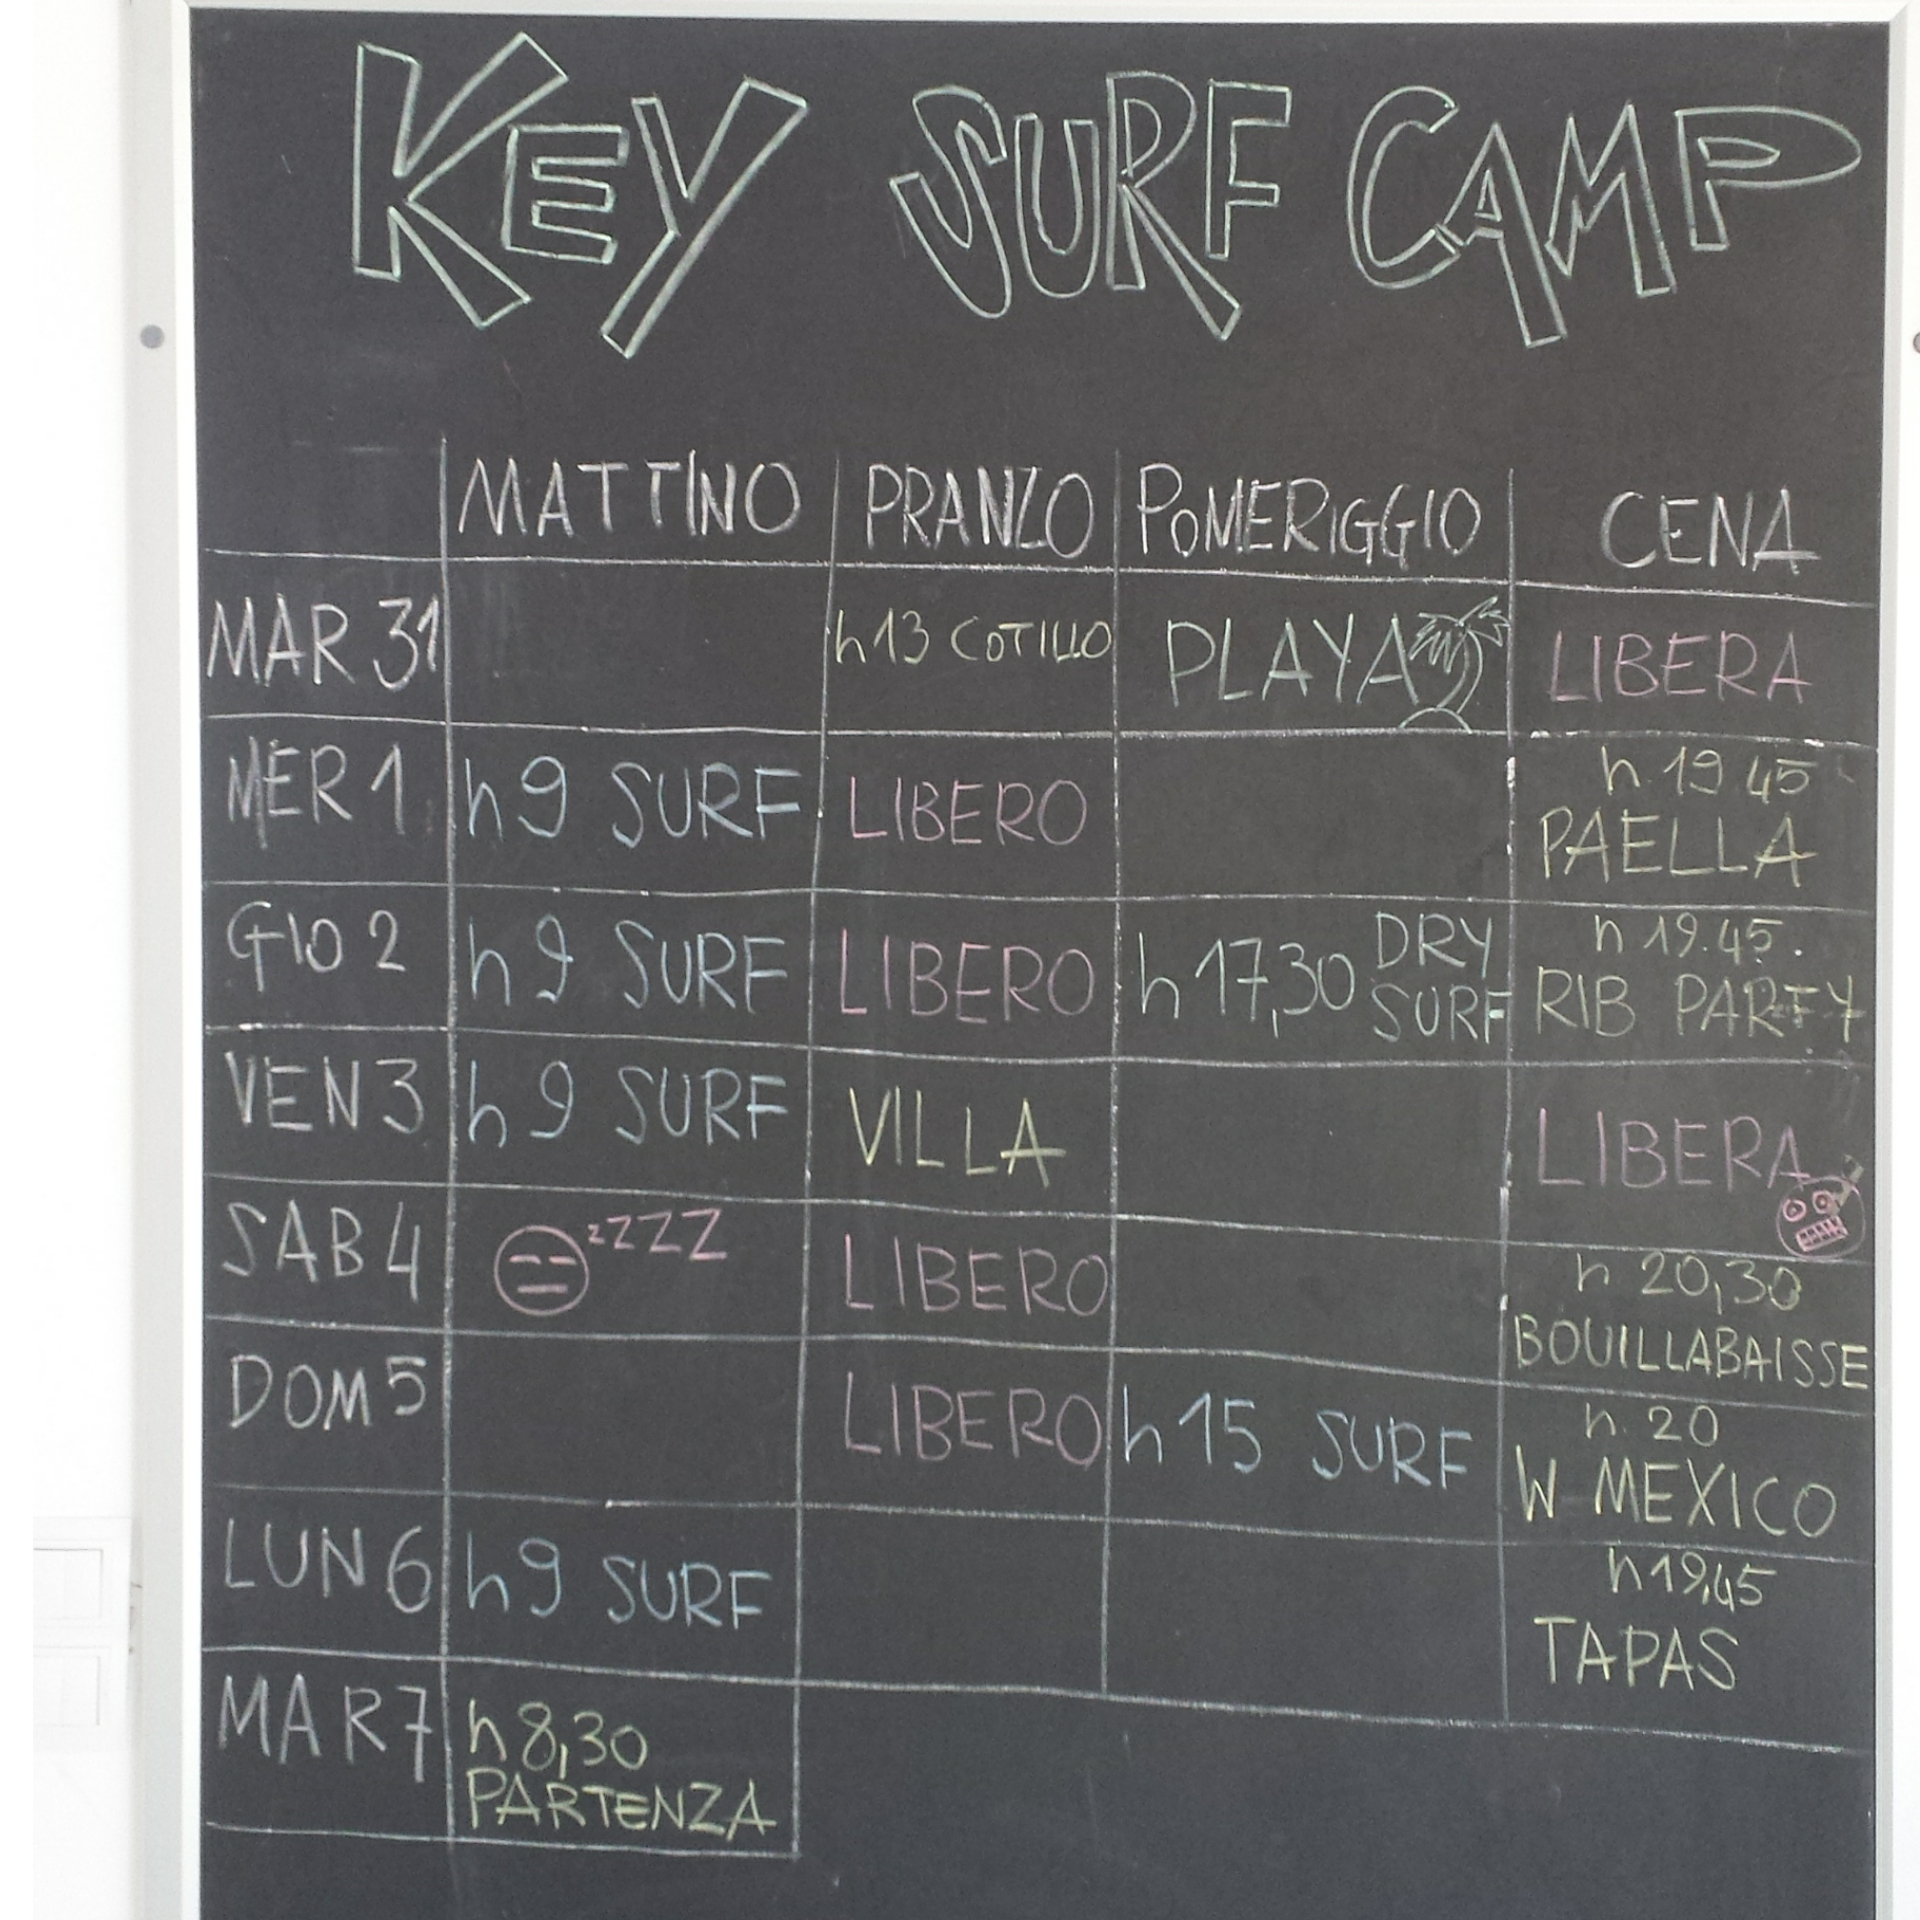 KEY SURF CAMP
MATTINO PRANZO POMERIGGIO CENA
MAR 31 h 13 COTILLO PLAYA LIBERA
MER 1 h 9 SURF LIBERO h 19 45 PAELLA
GIO 2 h 9 SURF LIBERO h 17,30 DRY SURF h 19.45. RIB PARTY
VEN 3 h 9 SURF VILLA LIBERA
SAB 4 zZZZZ LIBERO h 20,30 BOUILLABAISSE
DOM 5 LIBERO h 15 SURF h. 20 W MEXICO
LUN 6 h 9 SURF h 19,45 TAPAS
MAR 7 h 8,30 PARTENZA